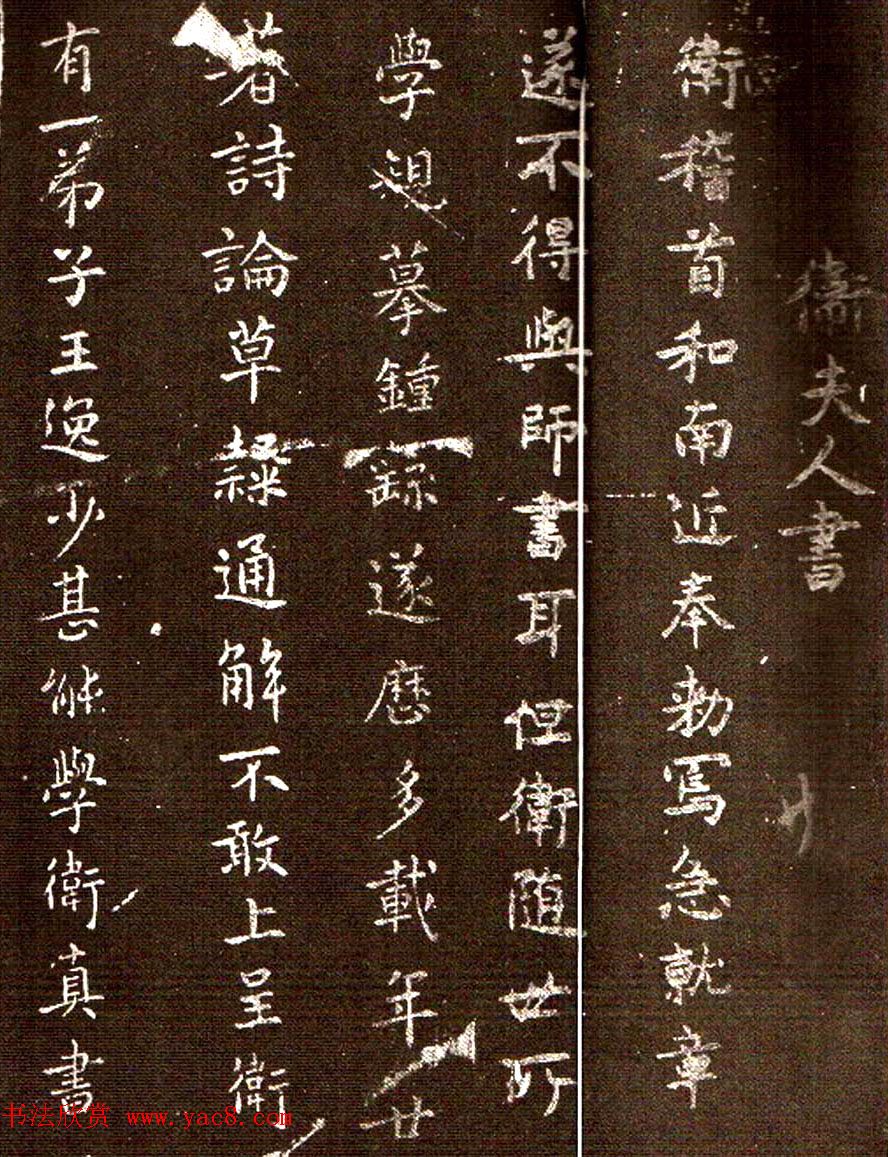 衛夫人書
衛稽首和南近奉勅寫急就章
遂不得與師書耳但衛随世所
學規摹鍾繇遂歷多載年廿
著詩論草隸通解不敢上呈衛
有一弟子王逸少甚能學衛真書
书法欣赏 www.yac8.com